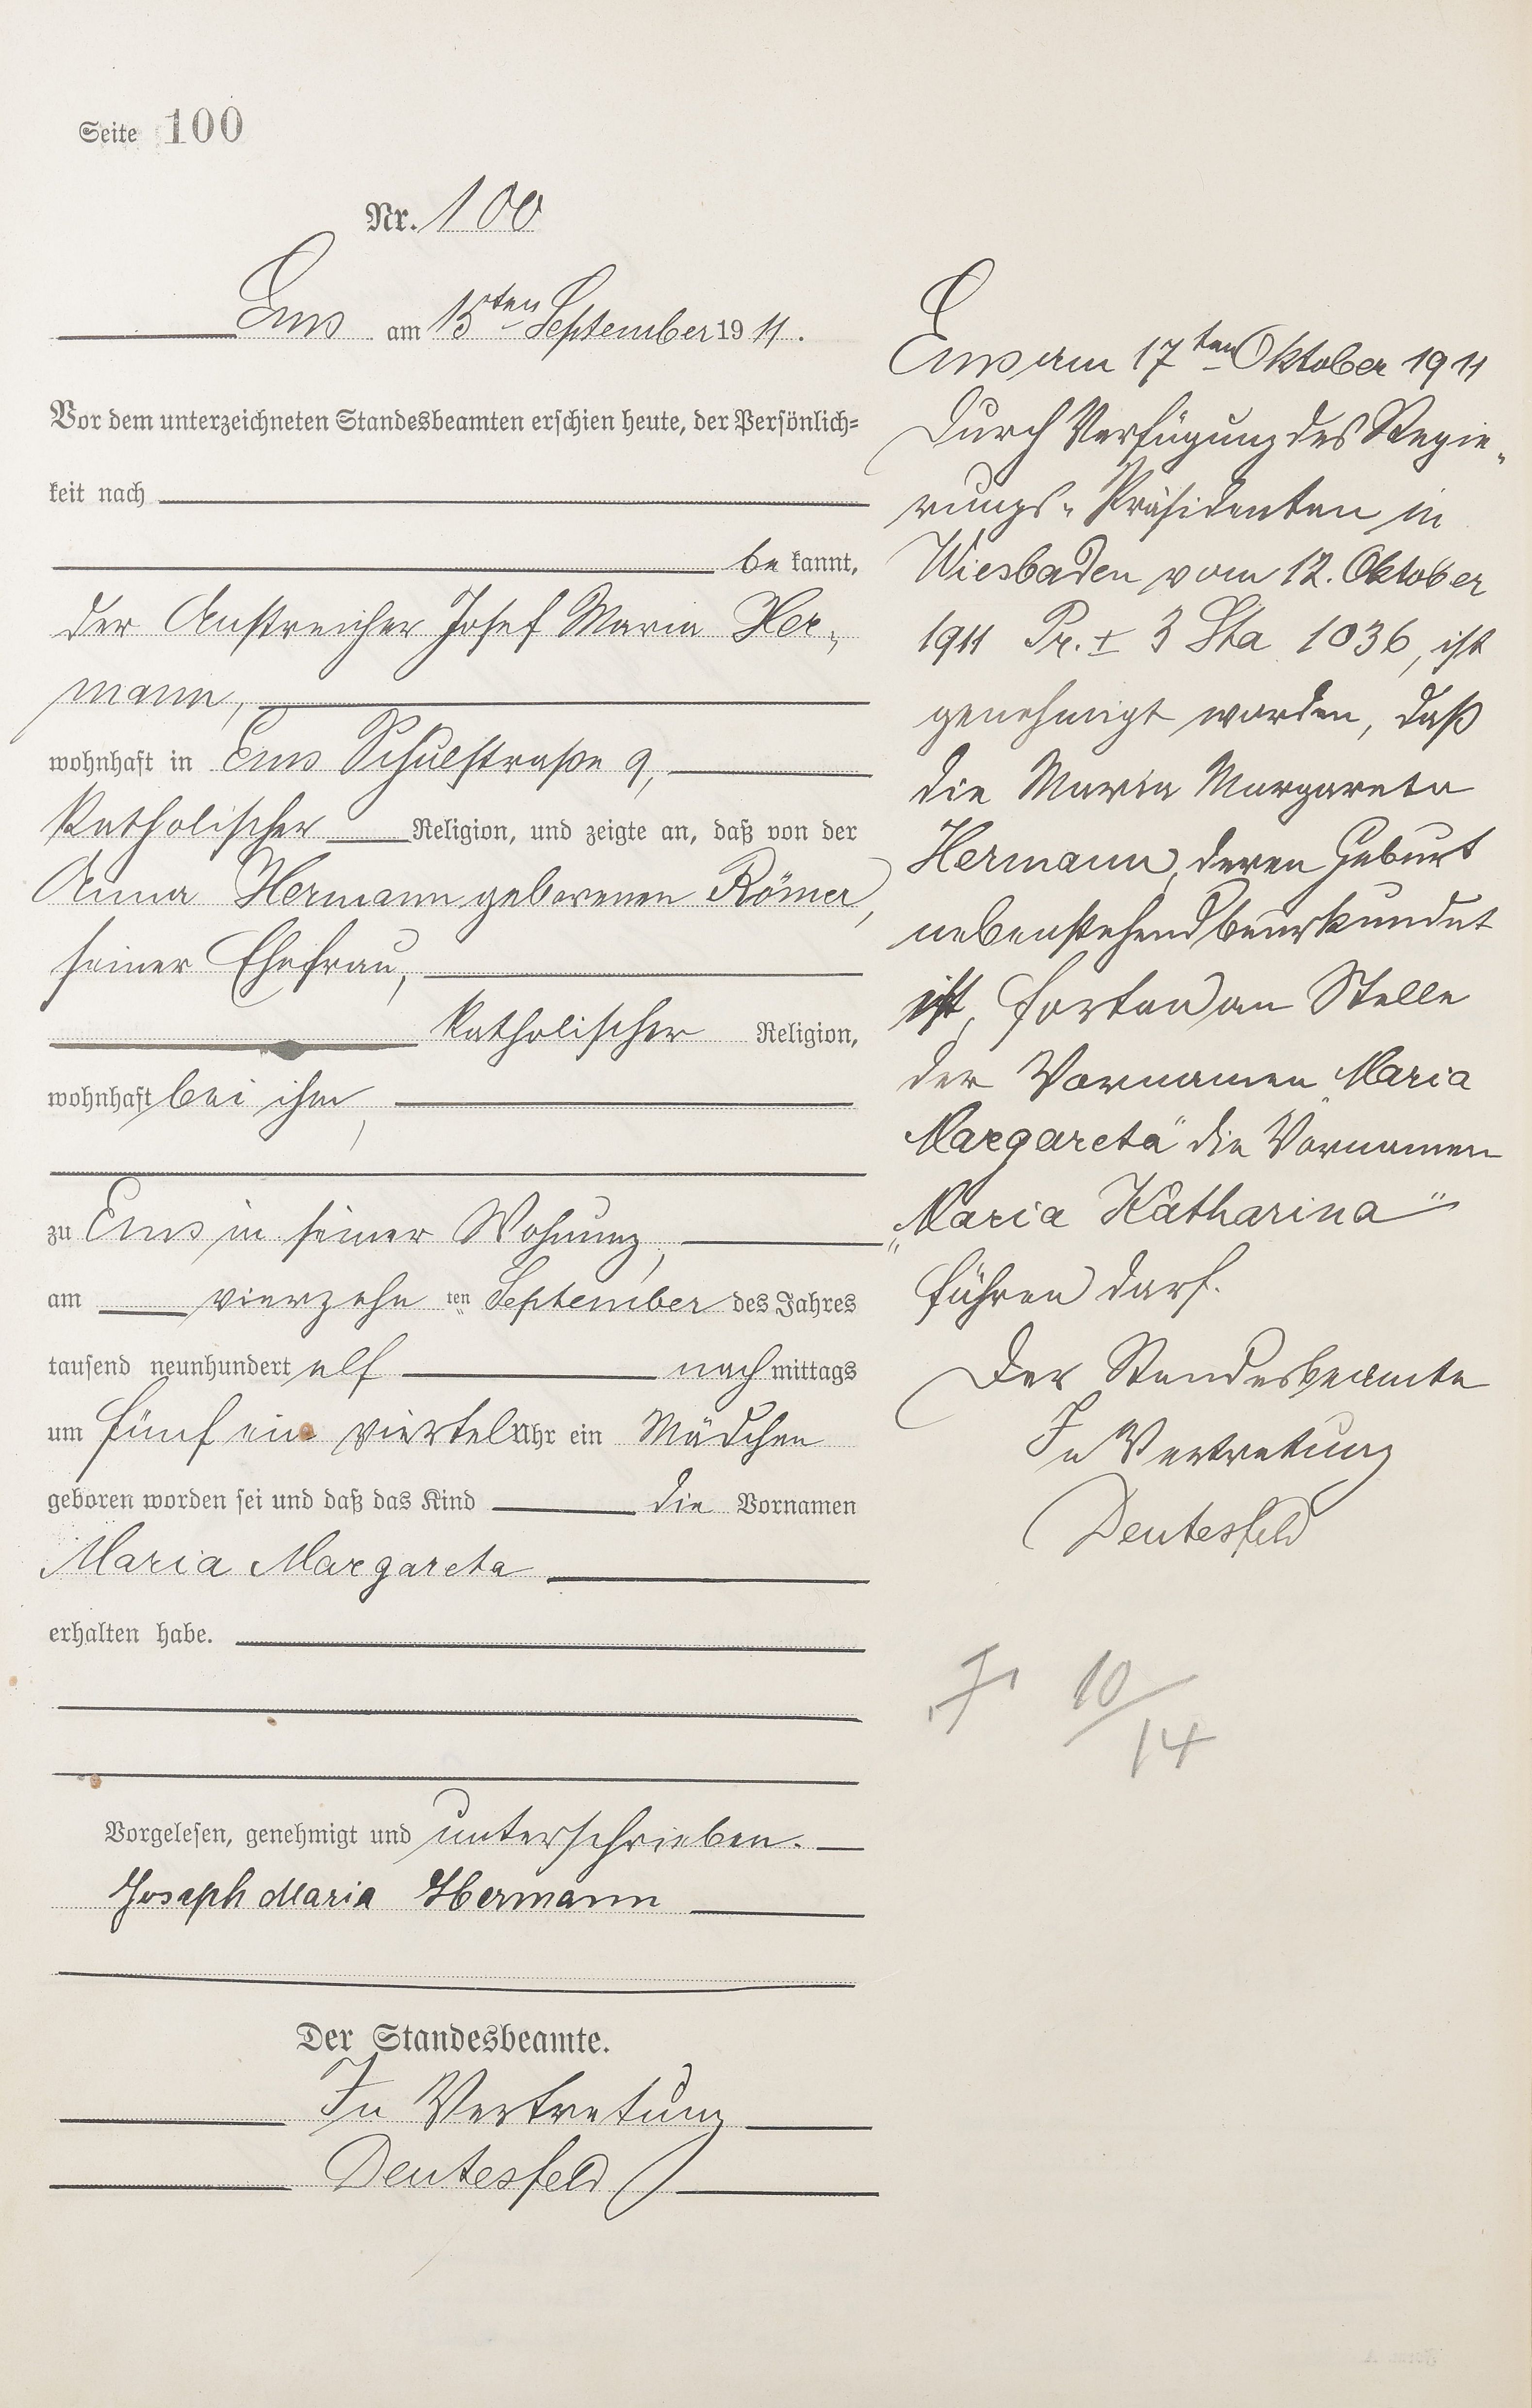 Seite 100
Nr. 100
Ems am 15ten September 1911.
Vor dem unterzeichneten Standesbeamten erschien heute, der Persönlich-
keit nach
be kannt,
der Anstreicher Josef Maria Her-
mann,
wohnhaft in Ems Schulstraße 9,
katholischer Religion, und zeigte an, daß von der
Anna Hermann geborenen Römer,
seiner Ehefrau,
katholischer Religion,
wohnhaft bei ihm,
zu Ems in seiner Wohnung,
am vierzehn ten September des Jahres
tausend neunhundert elf nach mittags
um fünf ein viertel Uhr ein Mädchen
geboren worden sei und daß das Kind die Vornamen
Maria Margareta
erhalten habe.
Vorgelesen, genehmigt und unterschrieben.
Joseph Maria Hermann
Der Standesbeamte.
In Vertretung
Deutesfeld
Ems am 17ten Oktober 1911
Durch Verfügung des Regie-
rungs-Präsidenten in
Wiesbaden vom 12. Oktober
1911 Pr. I 3 Sta 1036, ist
genehmigt worden, daß
die Maria Margareta
Hermann, deren Geburt
nebenstehend beurkundet
ist, fortan an Stelle
der Vornamen „Maria
Margareta" die Vornamen
„Maria Katharina"
führen darf.
Der Standesbeamte
In Vertretung
Deutesfeld
10/14